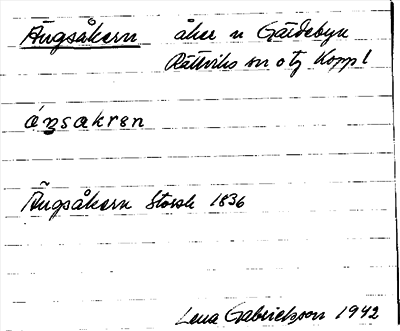 Ängsåkern åker n Gärdebyn
Rättviks sn o tg Koppl
ȧŋsakrən
Ängsåkern Storsk 1836
Lena Gabrielsson 1942